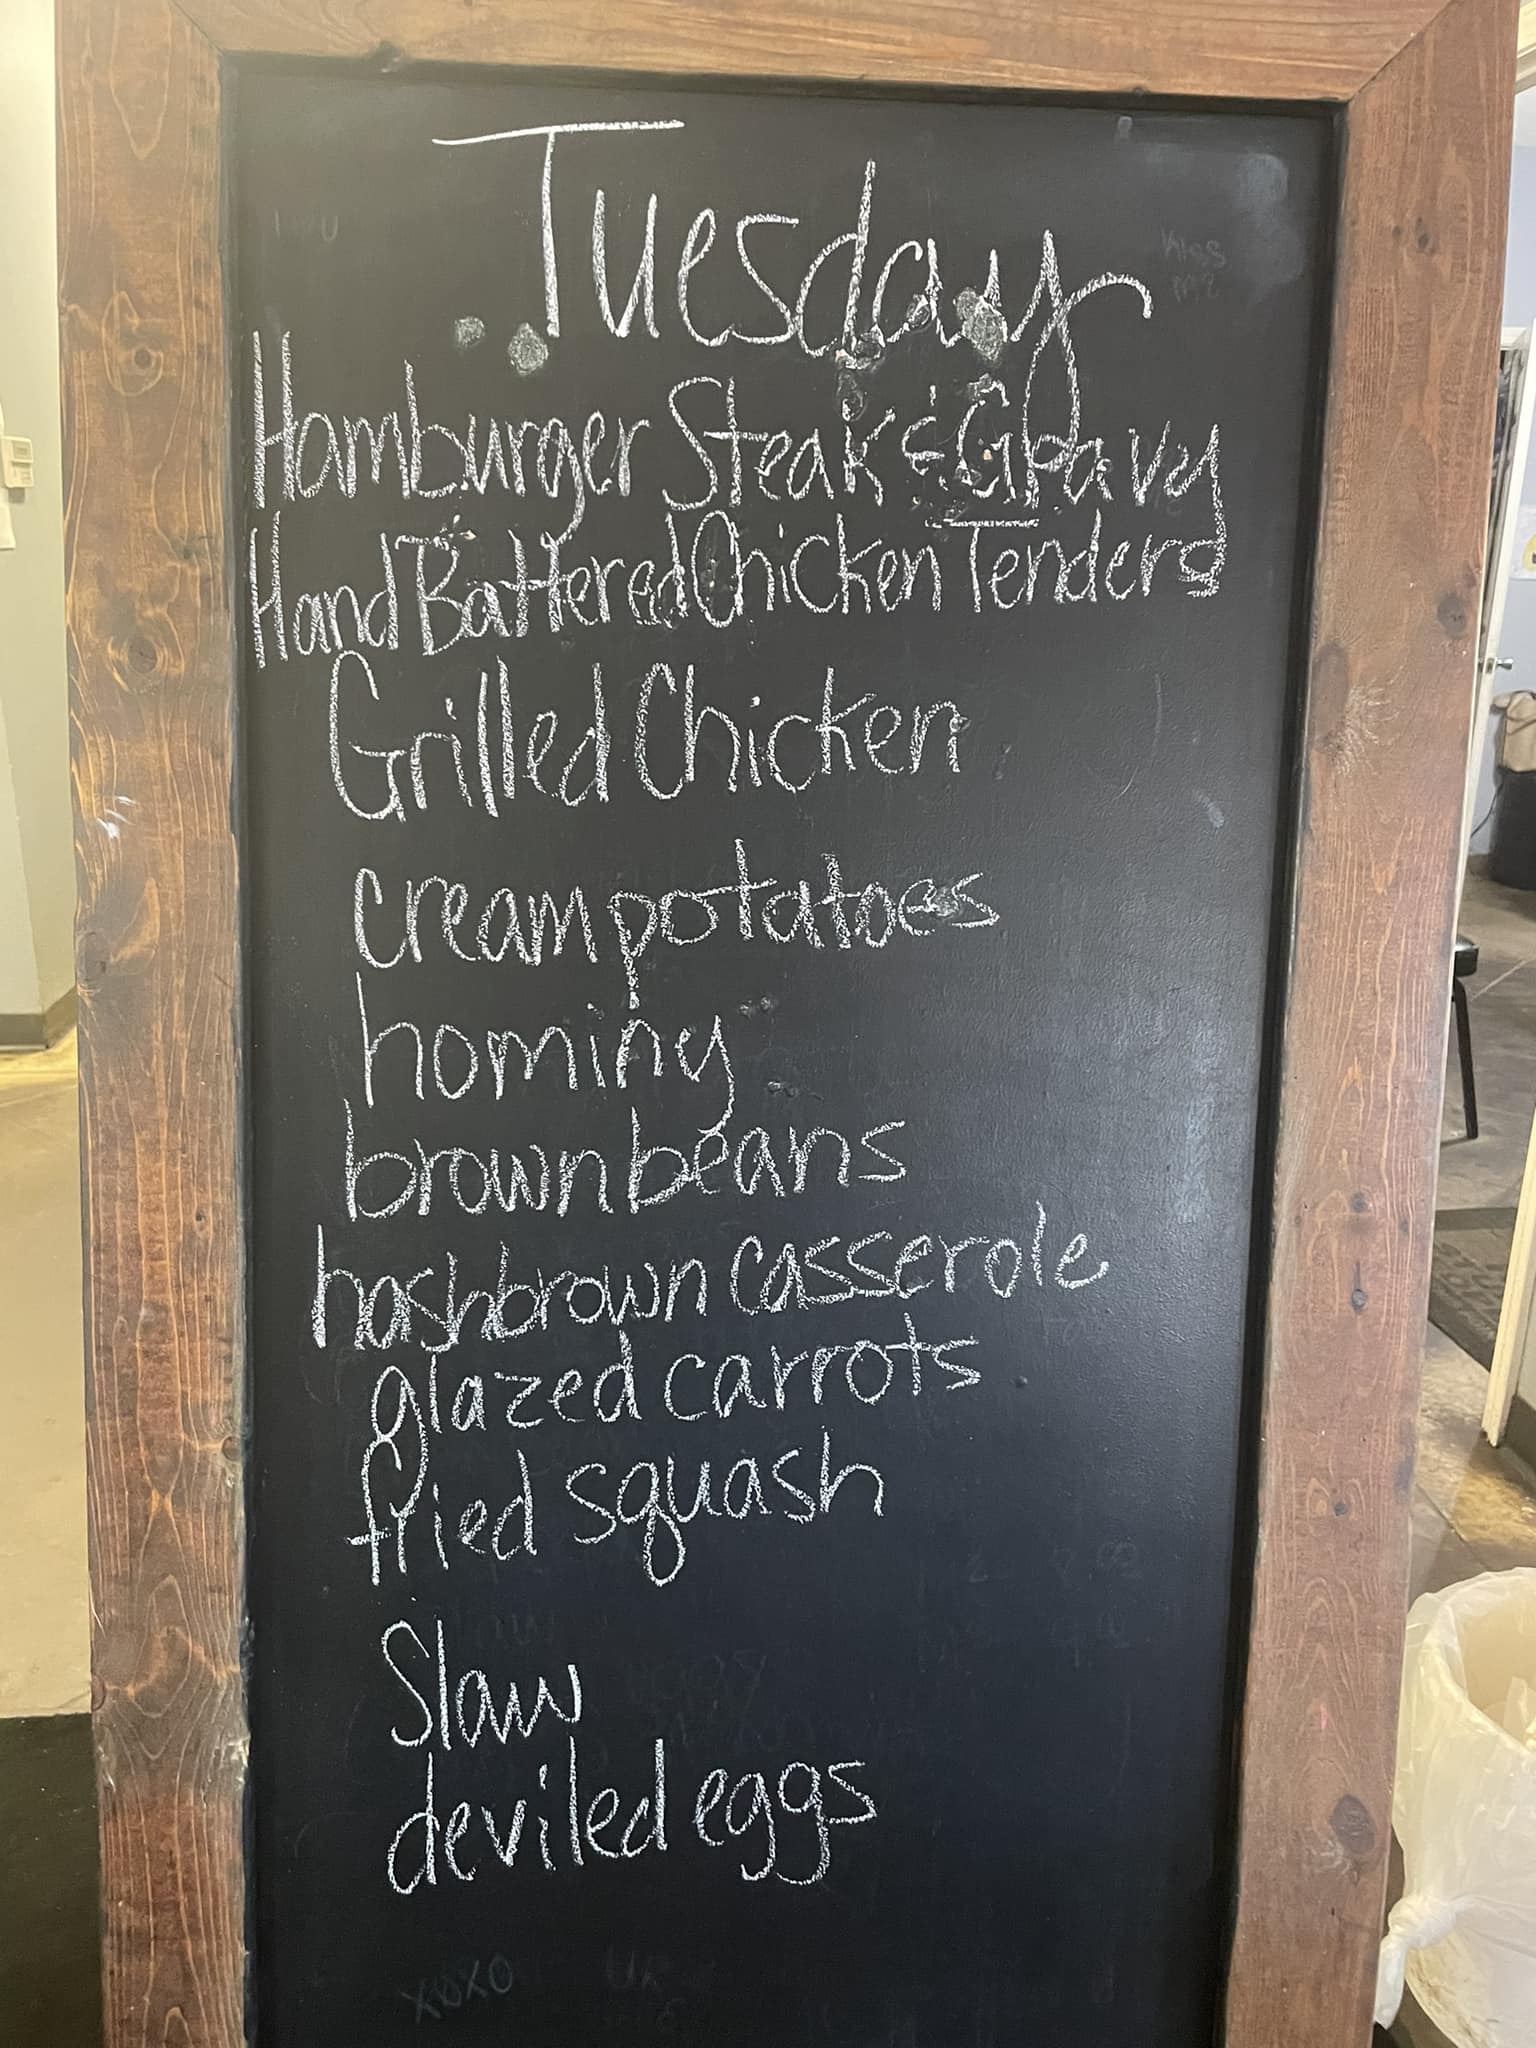 Tuesday
Hamburger Steak & Gravy
Hand Battered Chicken Tenders
Grilled Chicken
cream potatoes
hominy
brown beans
hashbrown casserole
glazed carrots
fried squash
Slaw
deviled eggs
XOXO